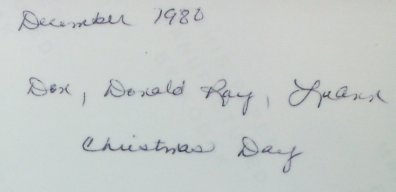 December 1980
Don, Donald Ray, LuAnn
Christmas Day